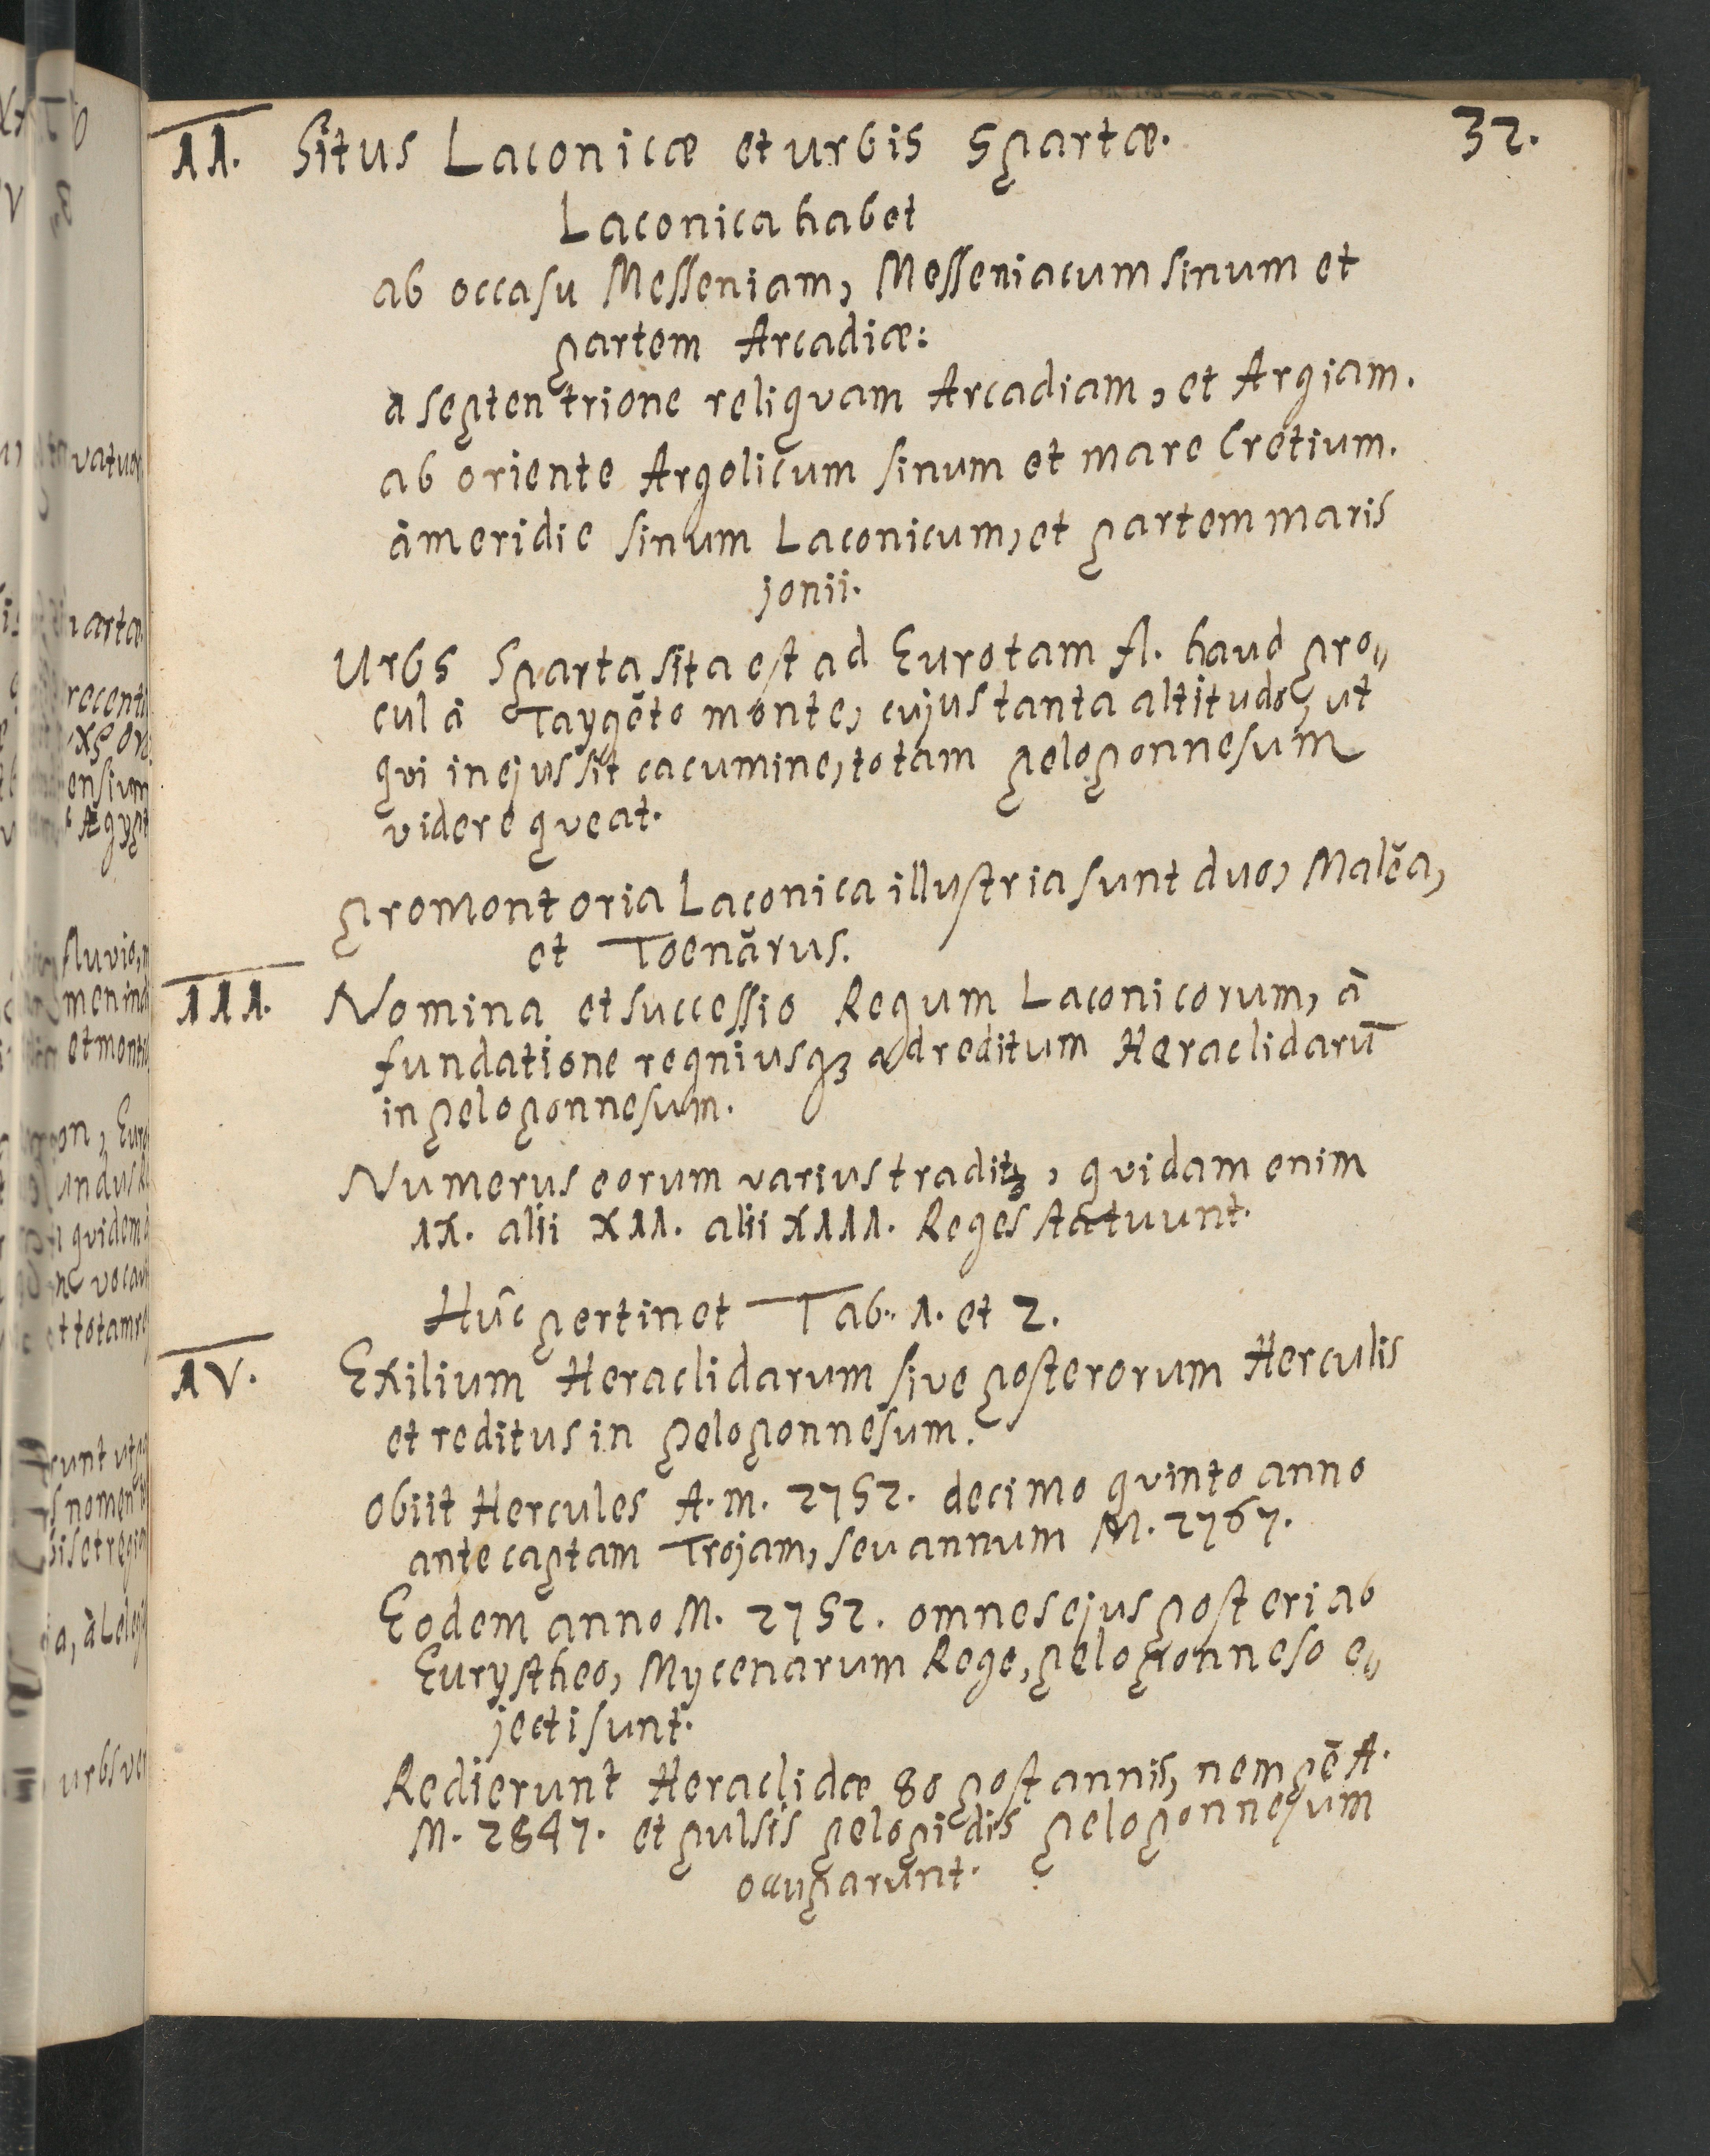 II. Situs Laconicæ et urbis Spartæ. 32.
Laconica habet
ab occasu Messeniam, Messeniacum sinum et
partem Arcadiæ:
a septentrione reliqvam Arcadiam, et Argiam.
ab oriente Argolicum sinum et mare Cretium.
â meridie sinum Laconicum, et partem maris
jonii.
Urbs Sparta sita est ad Eurotam fl. haud pro„
cul â Taygĕto monte, cujus tanta altitudo, ut
qvi in ejus sit cacumine, totam peloponnesum
videre qveat.
promontoria Laconica illustria sunt duo, Malĕa,
et Toenărus.
III. Nomina et successio Regum Laconicorum, â
fundatione regni usqꝫ ad reditum Heraclidarū
in peloponnesum.
Numerus eorum varius traditꝫ, qvidam enim
IX. alii XII. alii XIII. Reges statuunt.
Hûc pertinet Tab. 1. et 2.
IV. Exilium Heraclidarum sive posterorum Herculis
et reditus in peloponnesum.
Obiit Hercules A. m. 2752. decimo qvinto anno
ante captam Trojam, seu annum M. 2767.
Eodem anno M. 2752. omnes ejus posteri ab
Eurystheo, Mycenarum Rege, peloponneso e„
jecti sunt.
Redierunt Heraclidæ 80 post annis, nempē A.
M. 2847. et pulsis pelopidis peloponnesum
occuparunt.